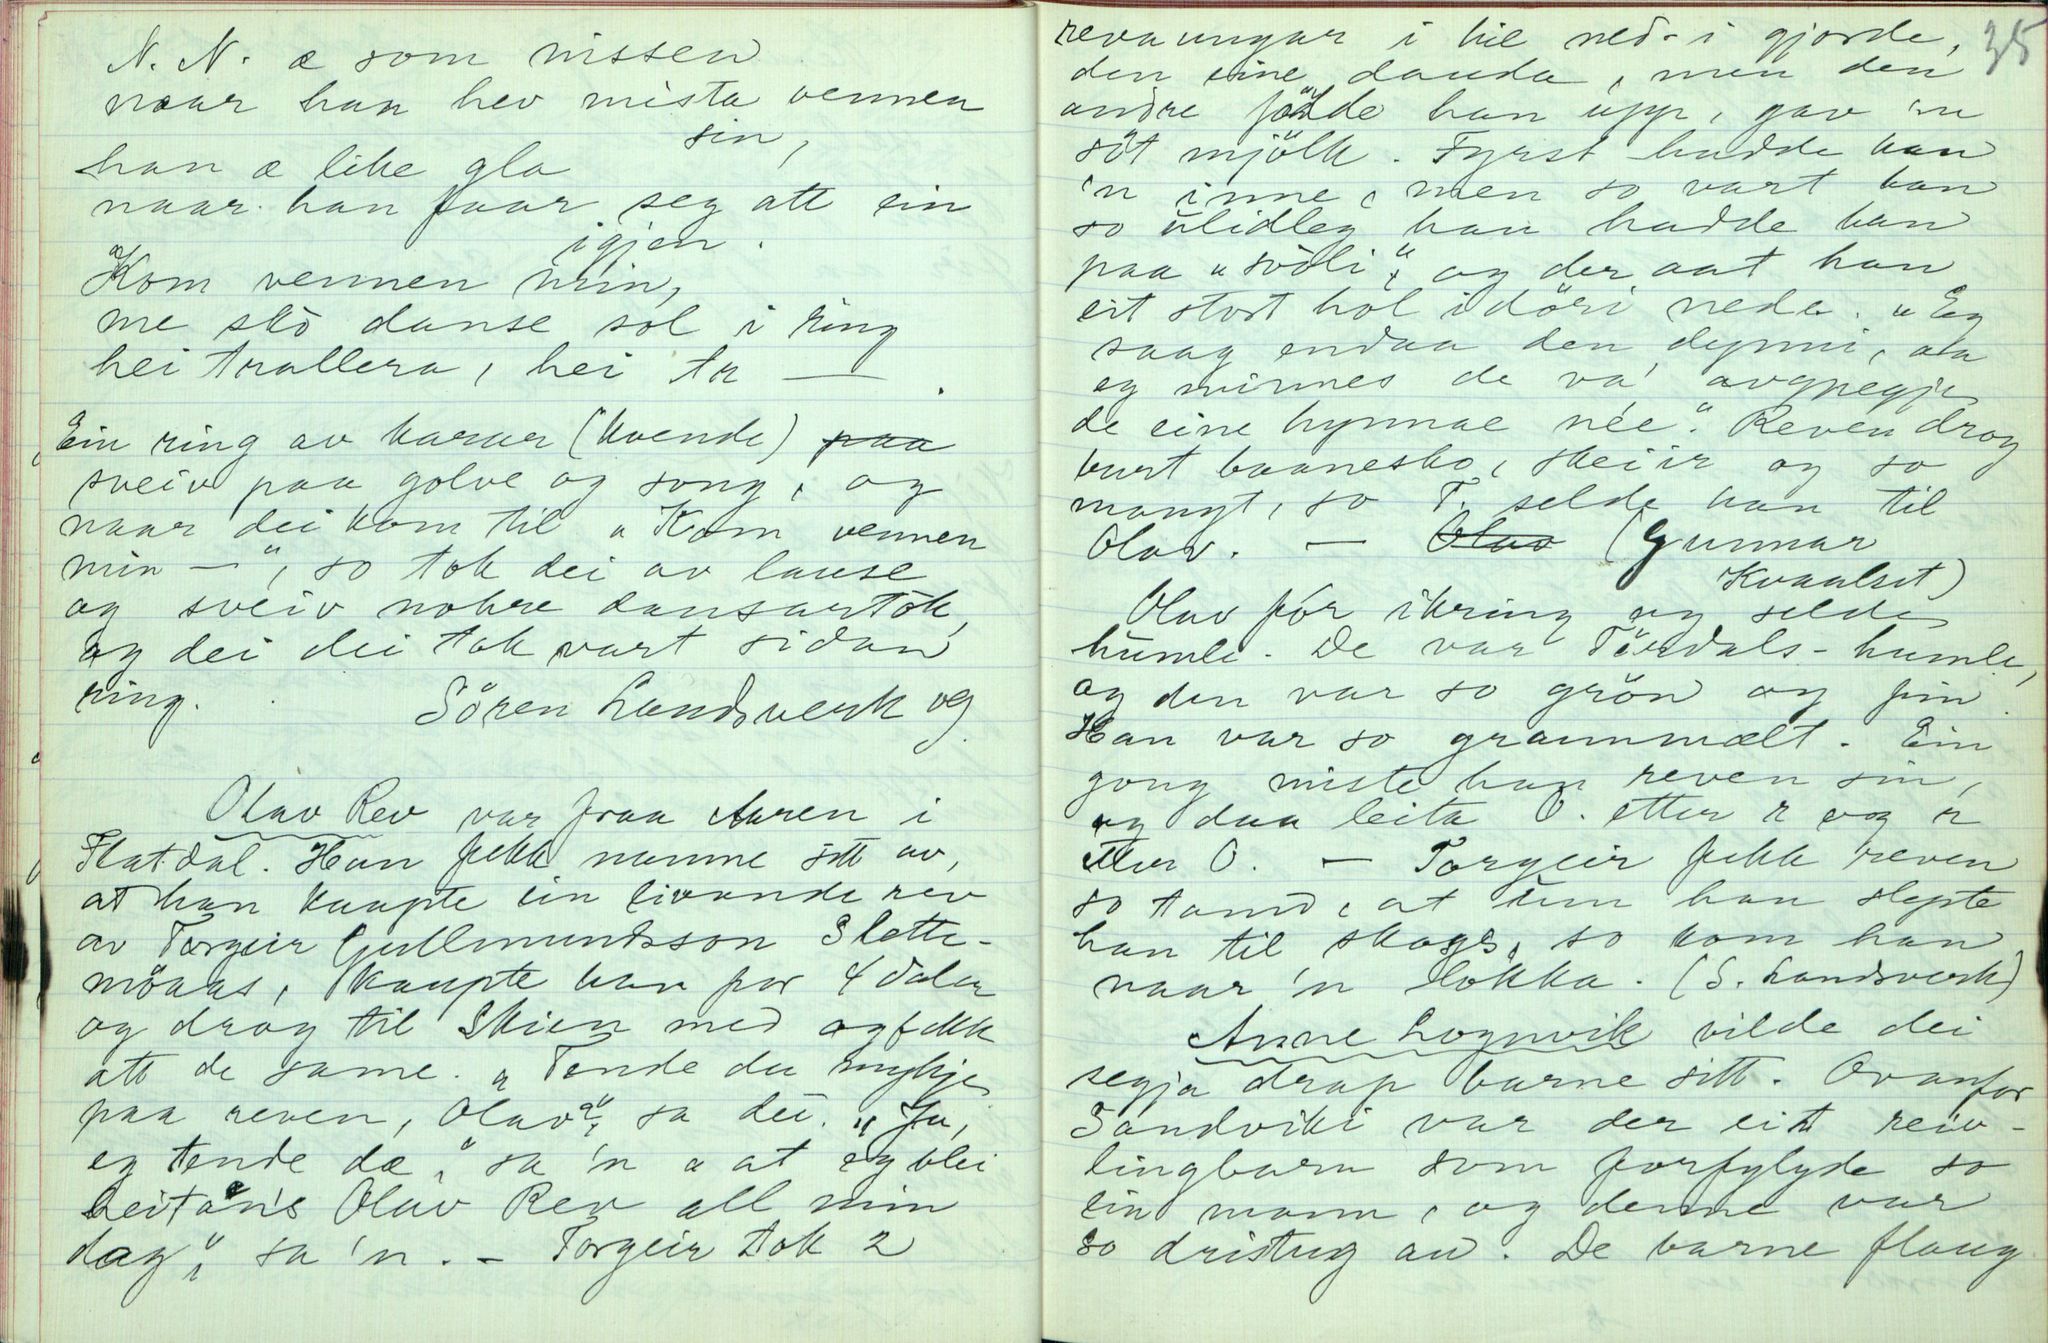 N. N. æ som nissen
naar han hev mista vennen
sin,
han æ like gla
naar han faar seg att ein
igjen.
Kom vennen min,
me sko danse sol i ring
hei trallera, hei tr —.
Ein ring av karar (kvende) paa
sveiv paa golve og song, og
naar dei kom til "Kom vennen
min —", so tok dei av lause
og sveiv nokre dansartök,
og dei dei tok vart sidan
ring.
Sören Landsverk og
Olav Rev var fraa Aaren i
Flatdal. Han fekk namne sitt av,
at han kaupte ein livande rev
av Torgeir Gullmundsson Slette-
möaas, kaupte han for 4 dalar
og drog til Skien med og fekk
att de same. "Tende du mykje
paa reven, Olav?" sa dei. "Ja,
eg tende dæ," sa 'n "at eg blei
heitan's Olav Rev all min
dag," sa 'n. – Torgeir tok 2
35
revaungar i hie ned- i gjorde,
den eine dauda, men den
andre födde han upp, gav 'n
söt mjölk. Fyrst hadde han
'n inne, men so vart han
so ulidleg han hadde han
paa "svòli", og der aat han
eit stort hol i döri nede. "Eg
saag endaa den dynni, aa
eg minnes de va'
de eine hynnae née." Reven drog
burt baanesko, skeiir og so
mangt, so T. selde han til
Olav. — Olav (Gunnar
Kvaalset)
Olav fór ikring og selde
humle. De var Tördals-humle,
og den var so grön og fin.
Han var so grannmælt. Ein
gong miste han reven sin,
og daa leita O. etter r og r
etter O. — Torgeir fekk reven
so tam, at um han slepte
han til skogs, so kom han
naar 'n lokka. (S. Landsverk)
Anne Lognvik vilde dei
segja drap barne sitt. Ovanfor
Sandviki var der eit reiv-
lingbarn som forfylgde so
ein mann, og denne var
so dristug au. De barne flaug